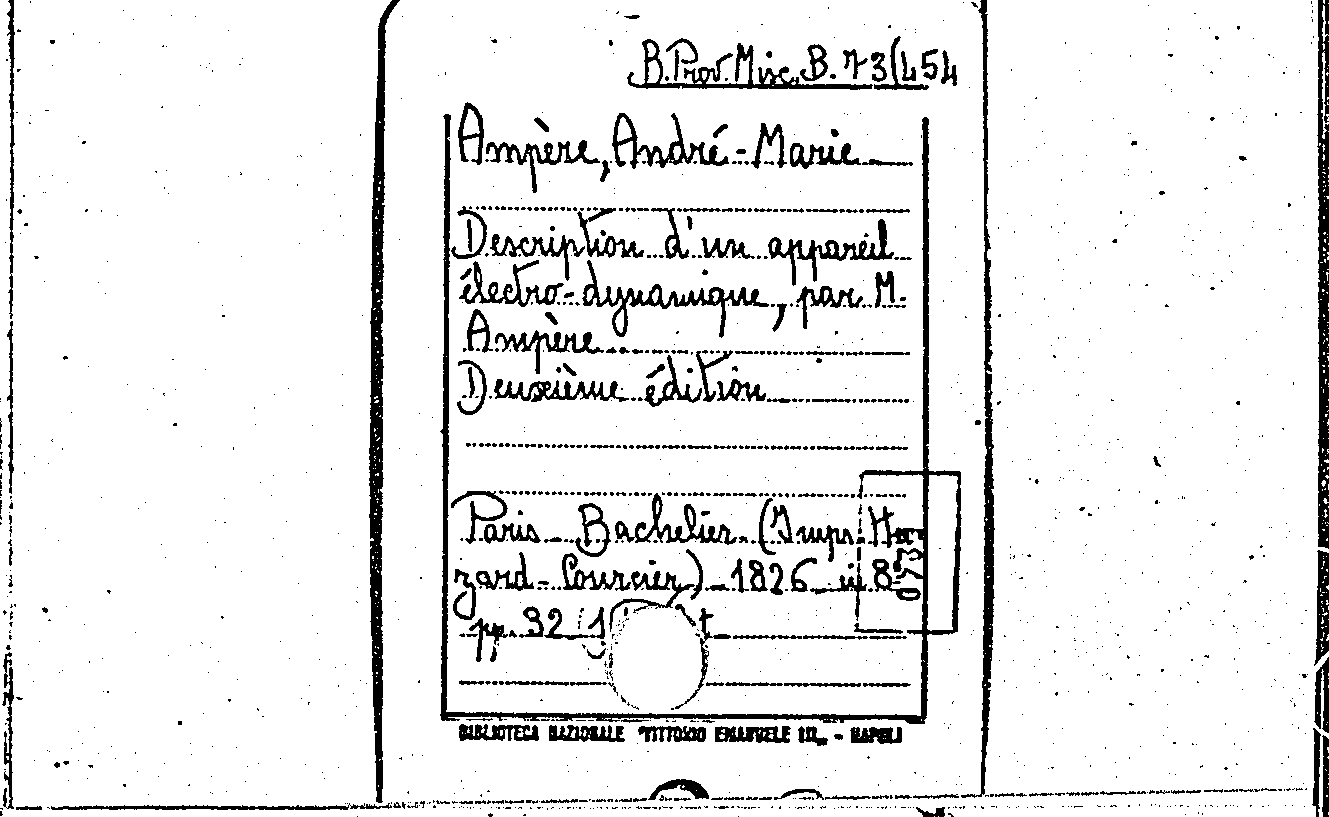 B. Prov. Misc. B. 73(454
Ampère, André-Marie
Description d'un appareil
électro-dynamique, par M.
Ampère...
Deuxième édition
Paris Bachelier (Imp. Hu
zard-Courcier) 1826 in 8°
pp. 32
BIBLIOTECA NAZIONALE "VITTORIO EMANUELE III" - NAPOLI